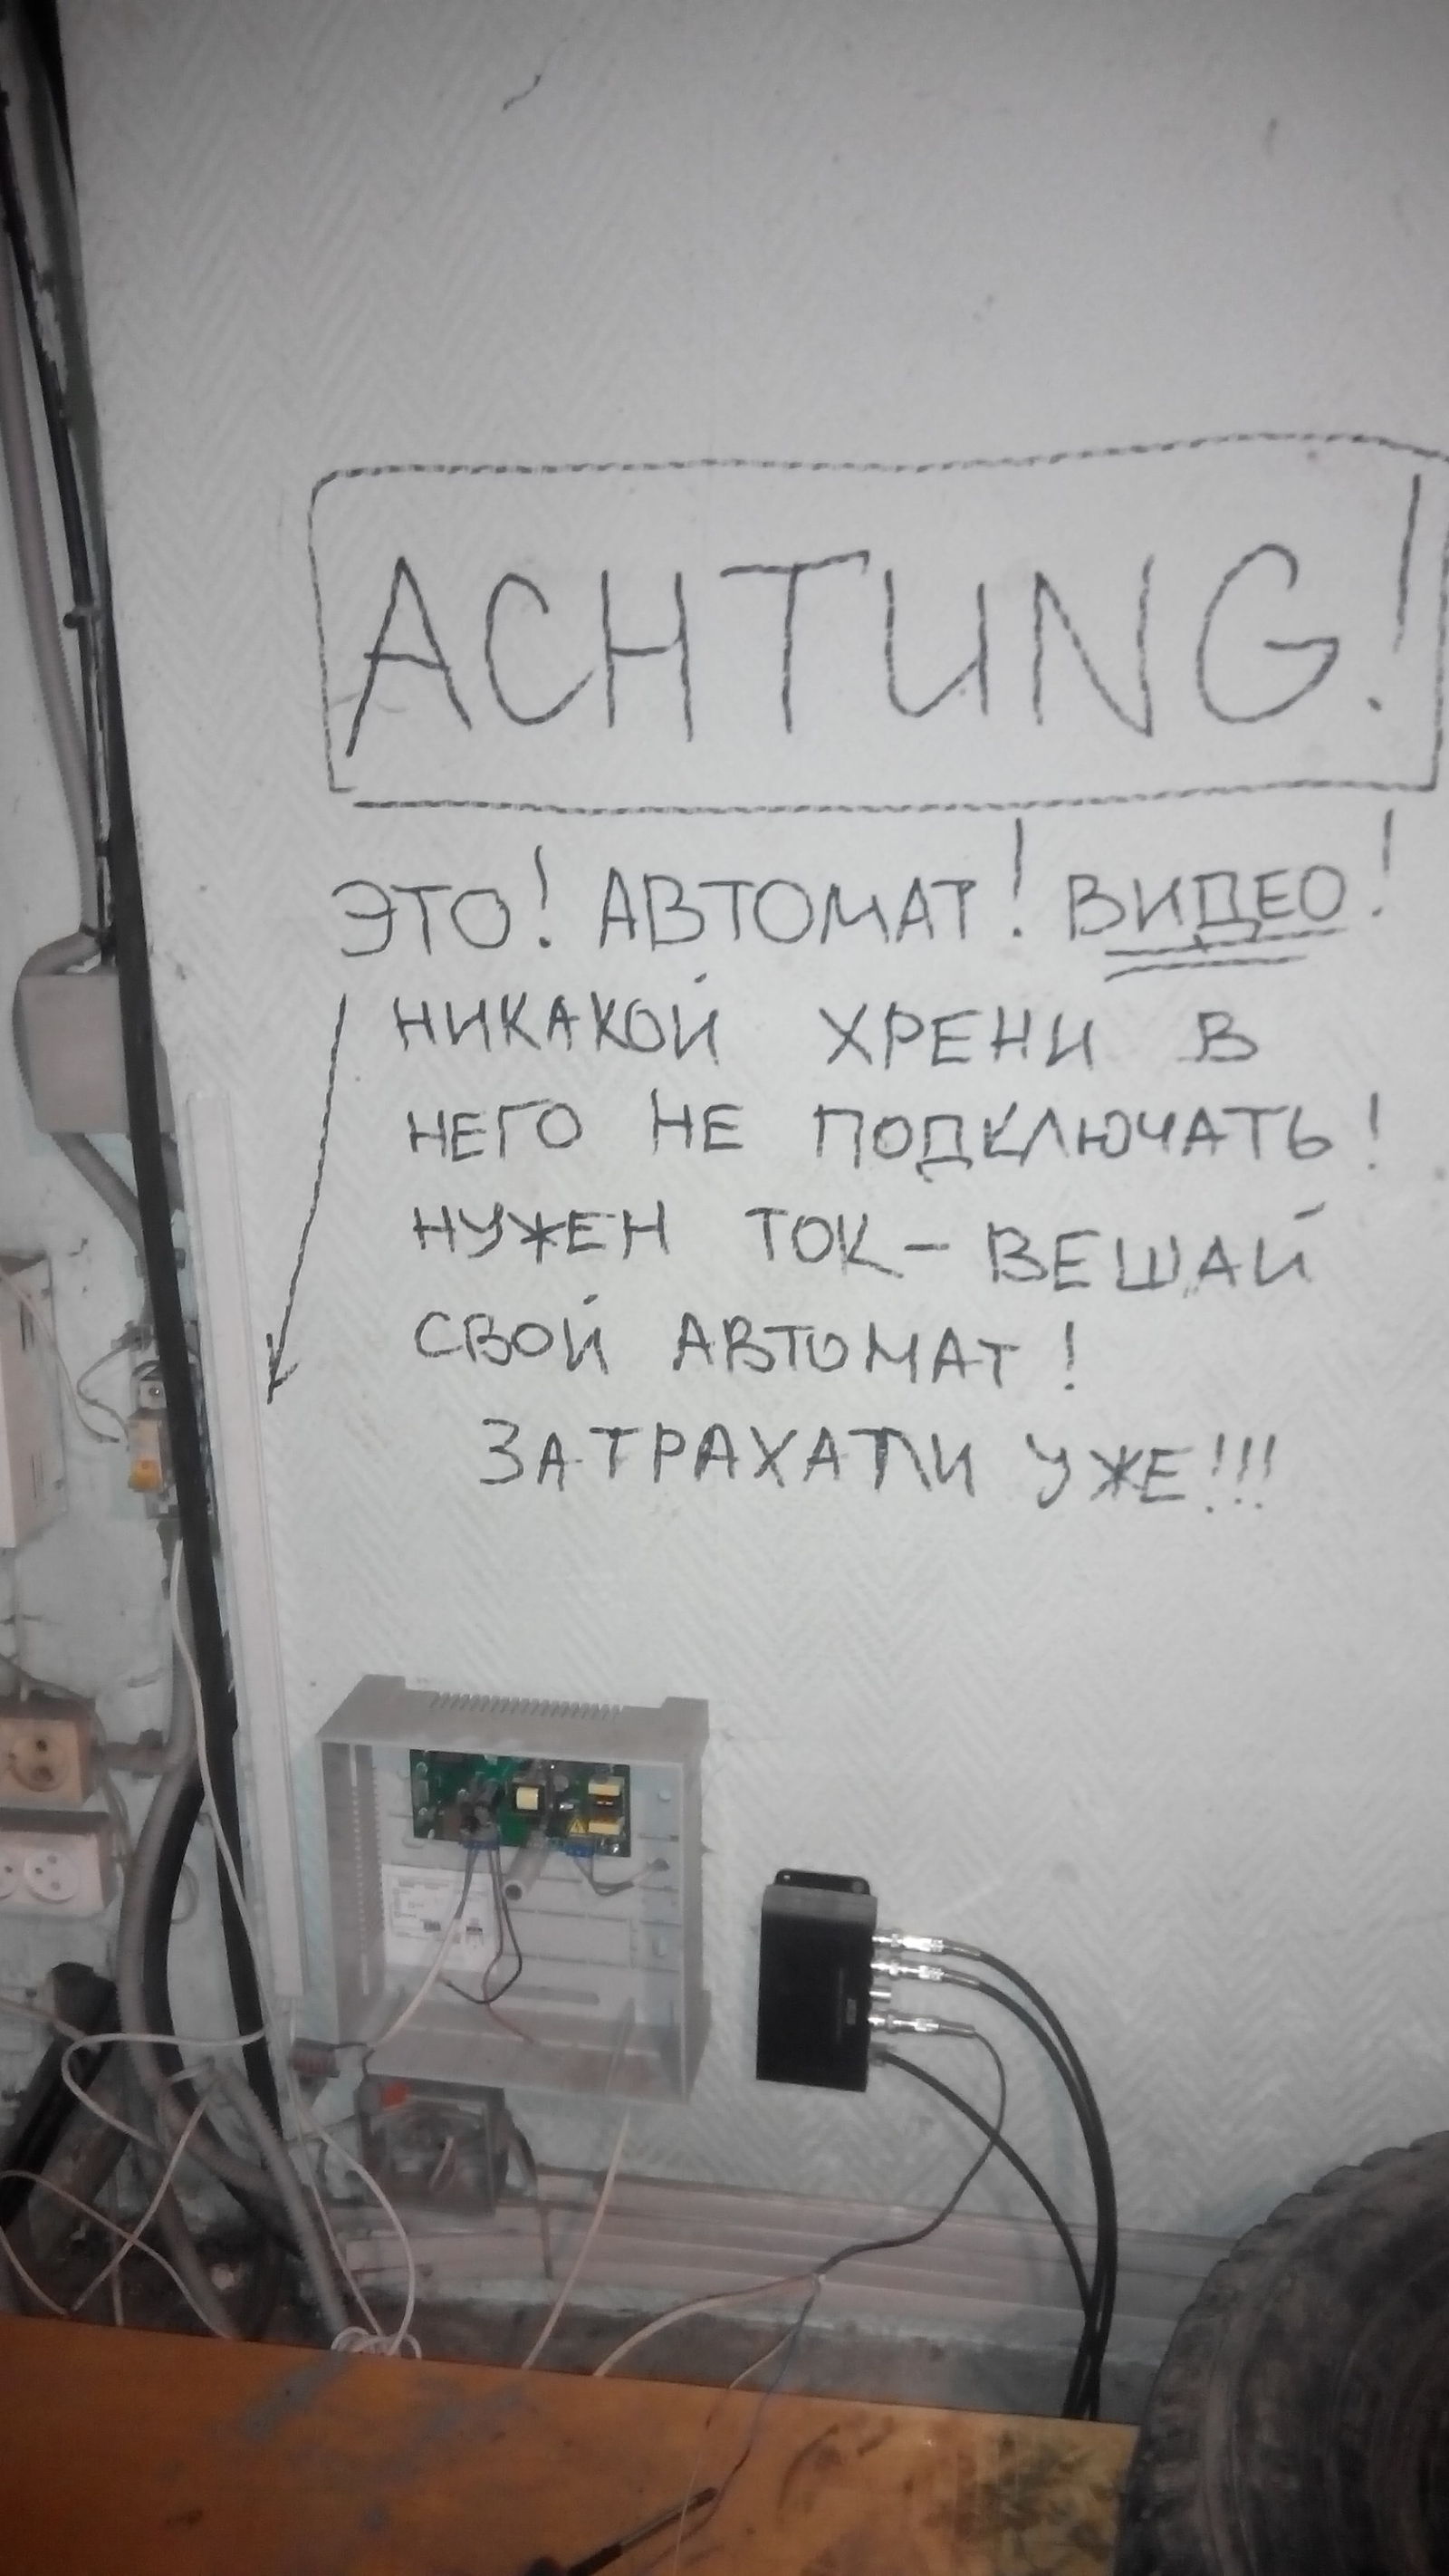 ACHTUNG!
ЭТО! АВТОМАТ! ВИДЕО!
НИКАКОЙ ХРЕНИ В
НЕГО НЕ ПОДКЛЮЧАТЬ!
НУЖЕН ТОК - ВЕШАЙ
СВОЙ АВТОМАТ!
ЗАТРАХАЛИ УЖЕ!!!